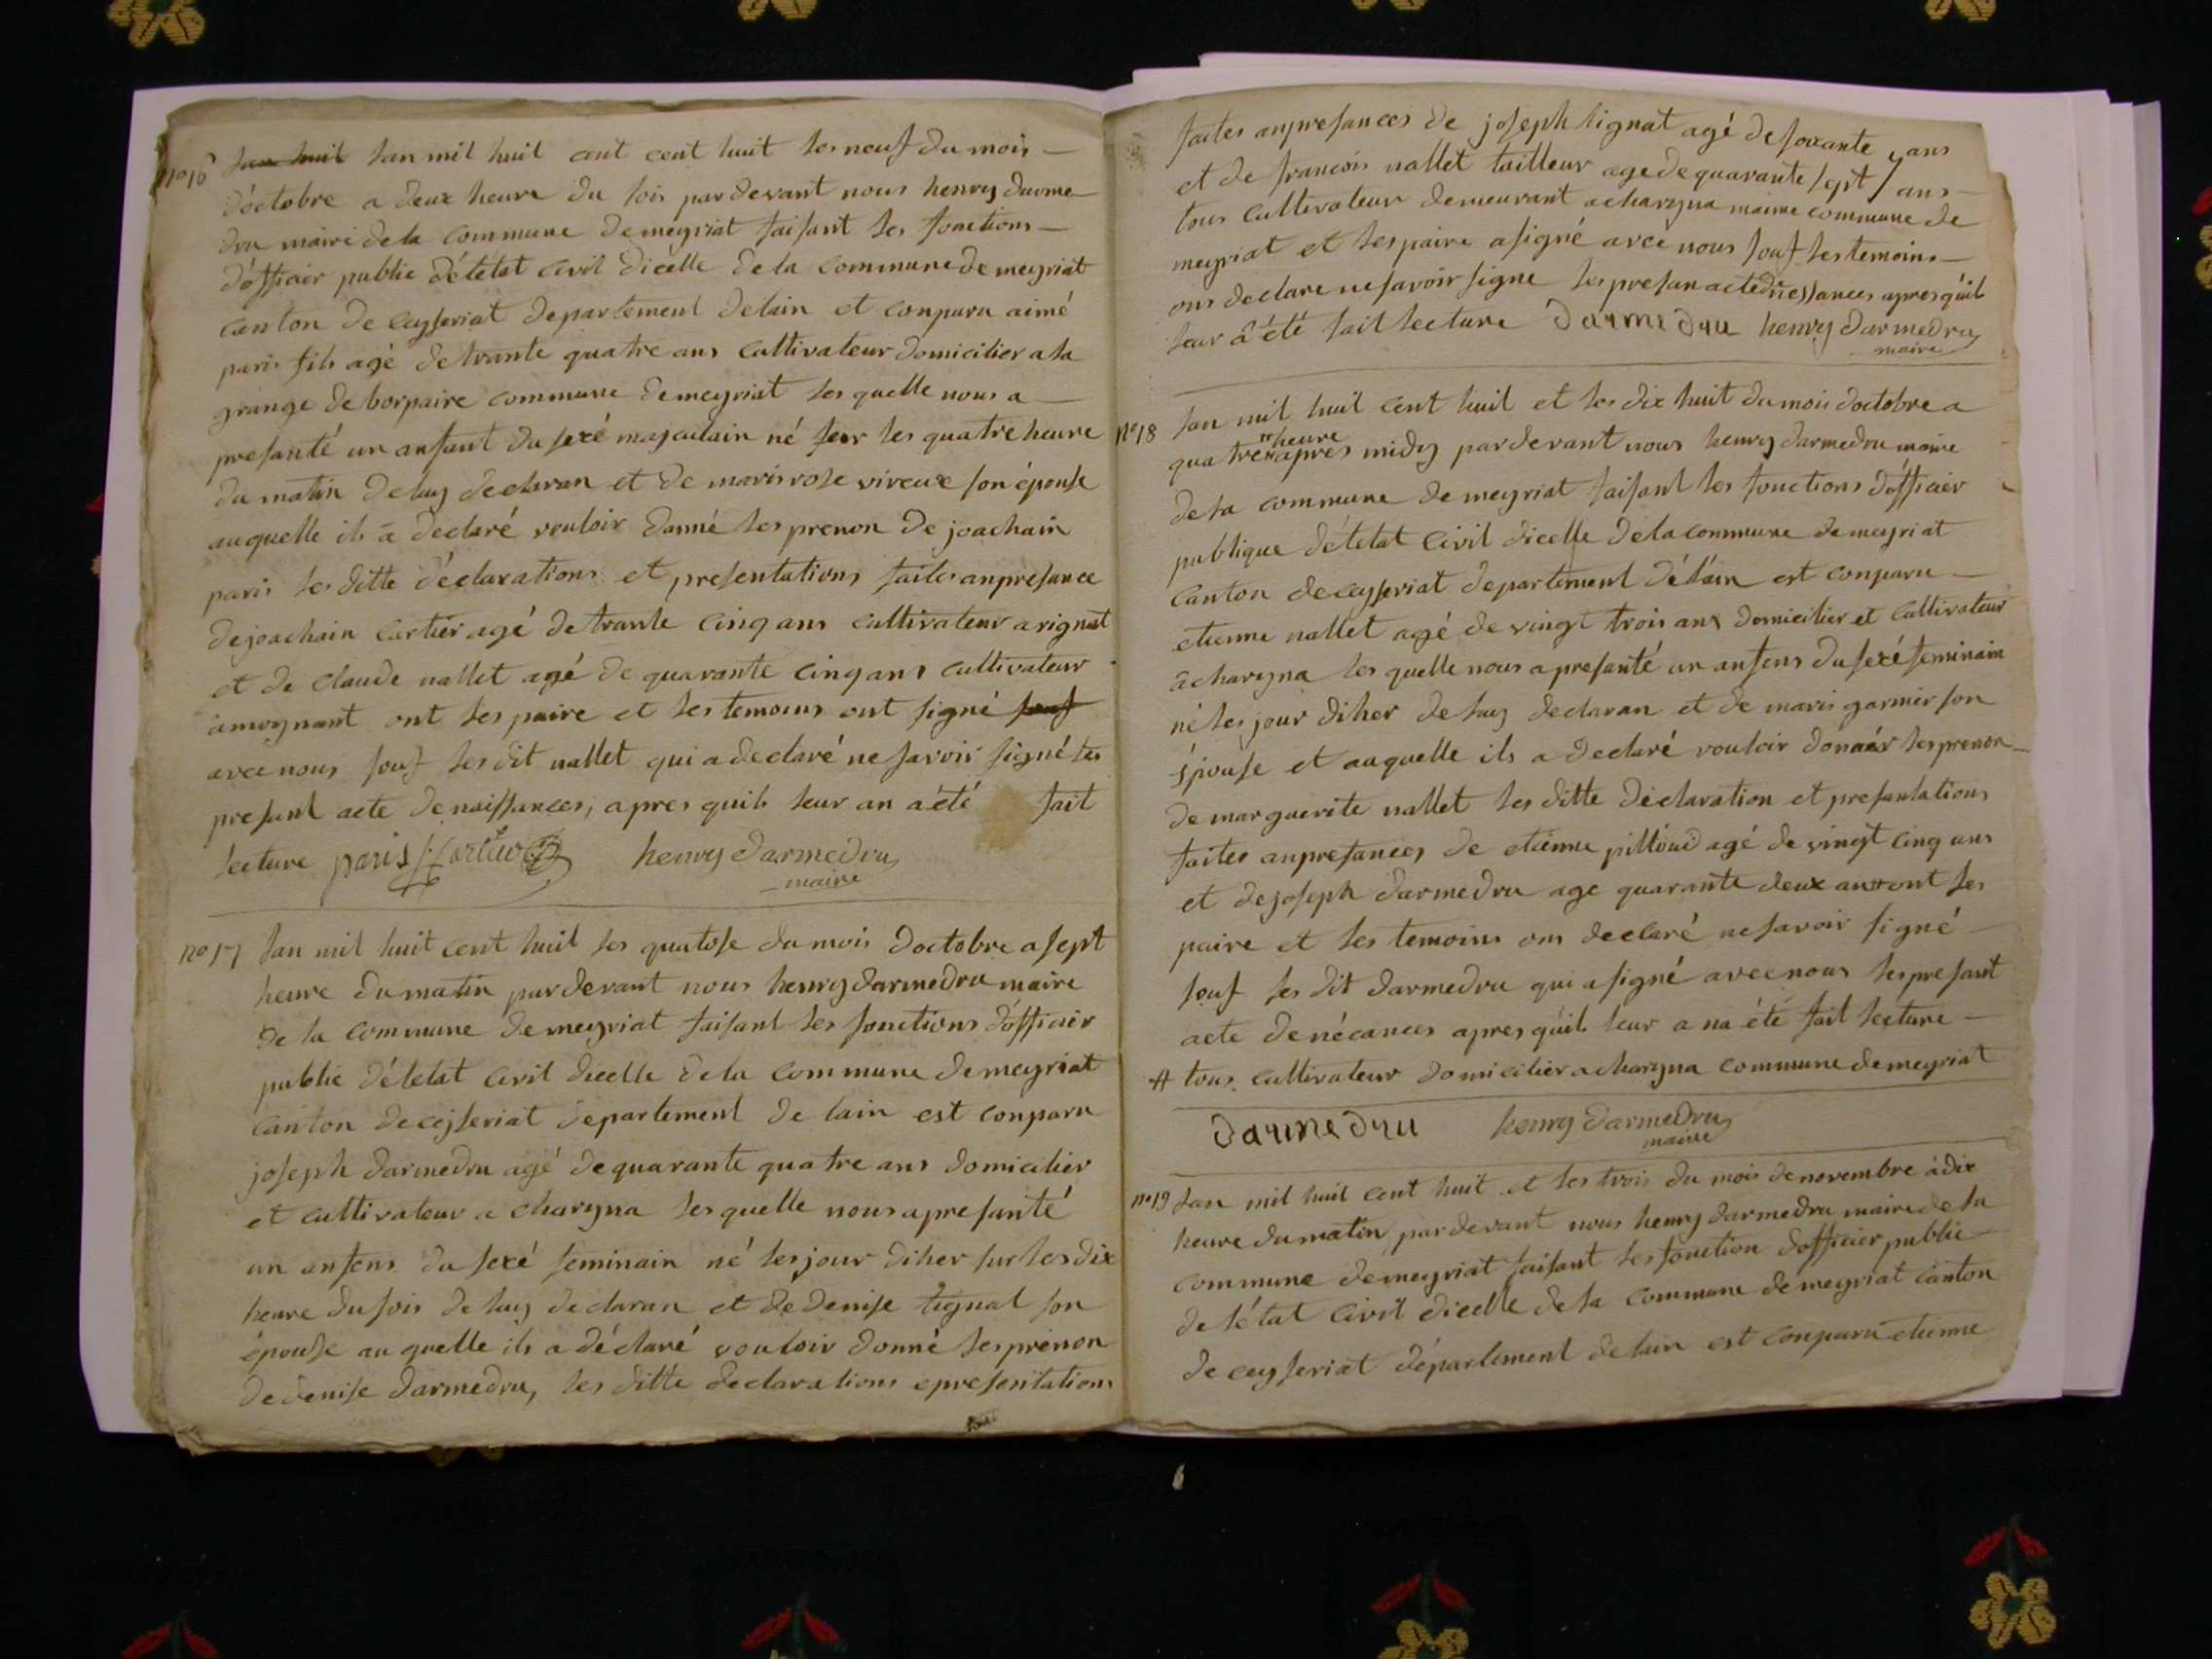 no 16 Lan huil Lan mil huil cent cent huit les neuf du mois
d'octobre a deux heure du soir par devant nous henry darme
dru maire de la commune de meyriat faisant les fonctions
d'officier public dé tetat civil dicelle de la commune de meyriat
canton de ceyseriat departement de lain et conparu aimé
paris fils agé de trante quatre ans cultivateur domicilier a la
grange de borpaire commune de meyriat les quelle nous a
presanté un anfant du sexé masculain né seur les quatre heure
du matin de luy declaran et de mari rose vireux son épouse
auquelle ils a declaré vouloir danné les prenon de joachain
paris les ditte déclarations et presentations faites anpresance
de joachain cartier agé de trante cinq ans cultivateur a rignat
et de claude nallet agé de quarante cinq ans cultivateur
a moynant ont les paire et les temoins ont signé souf
avec nous souf les dit nallet qui a declaré ne savoir signé les
presant acte de naissances, apres quils leur an a été fait
lecture paris J: Cartier henry darmedru
maire
no 17 Lan mil huit cent huil les quatose du mois doctobre a sept
heure du matin par devant nous henry darmedru maire
de la commune de meyriat faisant les fonctions d'officier
public dé tetat civil dicelle de la commune de meyriat
canton de ceyseriat departement de lain est conparu
joseph darmedru agé de quarante quatre ans domicilier
et cultivateur a charyna les quelle nous a presanté
un anfens du sexé feminain né les jour diher sur les dix
heure du soir de luy declaran et de denise lignat son
épouse au quelle ils a déclaré vouloir donné les prenon
de denise darmedru, les ditte declarations e presentations
faites anpresances de joseph lignat agé de soixante ans
et de francois nallet tailleur age de quarante sept ans
tous cultivateur demeurant a charyna maime commune de
meyriat et les paire a signé avec nous souf les temoins
ons declare ne savoir signe les presan acte de nessances apres quil
leur â été fait lecture darmedru henry darmedru
maire
no 18 Lan mil huil cent huil et les dix huit du mois doctobre a
heure
quatre apres midy par devant nous henry darmedru maire
de la commune de meyriat faisant les fonctions d'officier
publique dé tetat civil dicelle de la commune de meyriat
canton de ceyseriat departement dé l'ain est conparu
etienne nallet agé de vingt trois ans domicilier et cultivateur
a charyna les quelle nous a presanté un anfens du sexé feminain
né les jour diher de luy declaran et de mari garnier son
épouse et auquelle ils a declaré vouloir donnér les prenon
de marguerite nallet les ditte déclaration et presantations
faites anpresances de etienne pittoud agé de vingt cinq ans
et de joseph darmedru age quarante deux an # ont les
paire et les temoins ons declaré ne savoir signé
souf les dit darmedru qui a signé avec nous les presant
acte de nécances apres quil leur a na été fait lecture
# tous cultivateur domicilier a charyna commune de meyriat
darmedru henry darmedru
maire
no 19 Lan mil huil cent huit et les trois du mois de novembre à dix
heure du matin par devant nous henry darmedru maire de la
commune de meyriat faisant les fonction d'officier public
de l'état civil dicelle de la commune de meyriat canton
de ceyseriat département de lain est conparu etienne